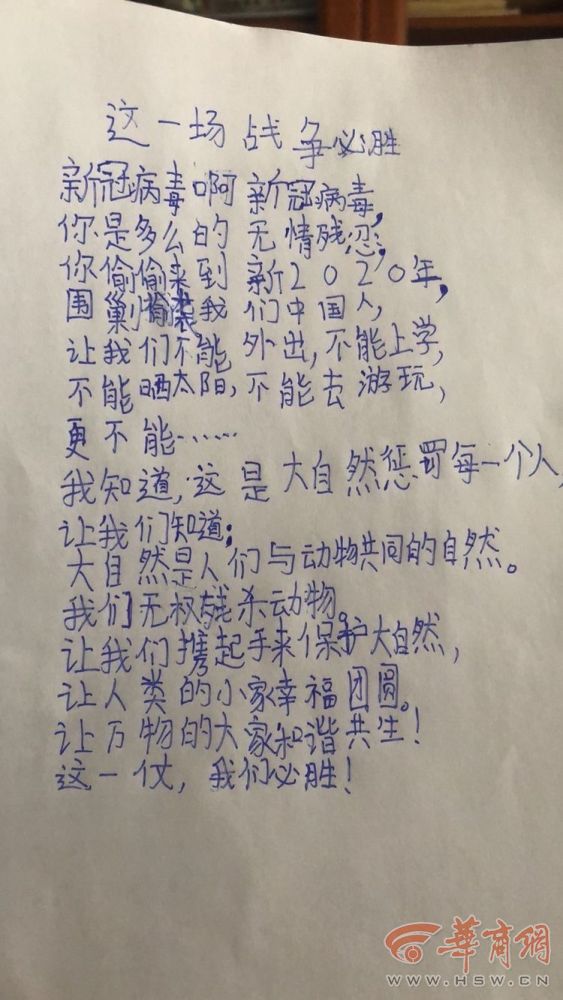 这一场战争必胜
新冠病毒啊新冠病毒,
你是多么的无情残忍,
你偷偷来到新2020年,
围剿偷袭我们中国人,
让我们不能外出,不能上学,
不能晒太阳,不能去游玩,
更不能……
我知道,这是大自然惩罚每一个人,
让我们知道;
大自然是人们与动物共同的自然。
我们无权残杀动物。
让我们携起手来保护大自然,
让人类的小家幸福团圆。
让万物的大家和谐共生!
这一仗,我们必胜!
華商網
WWW.HSW.CN